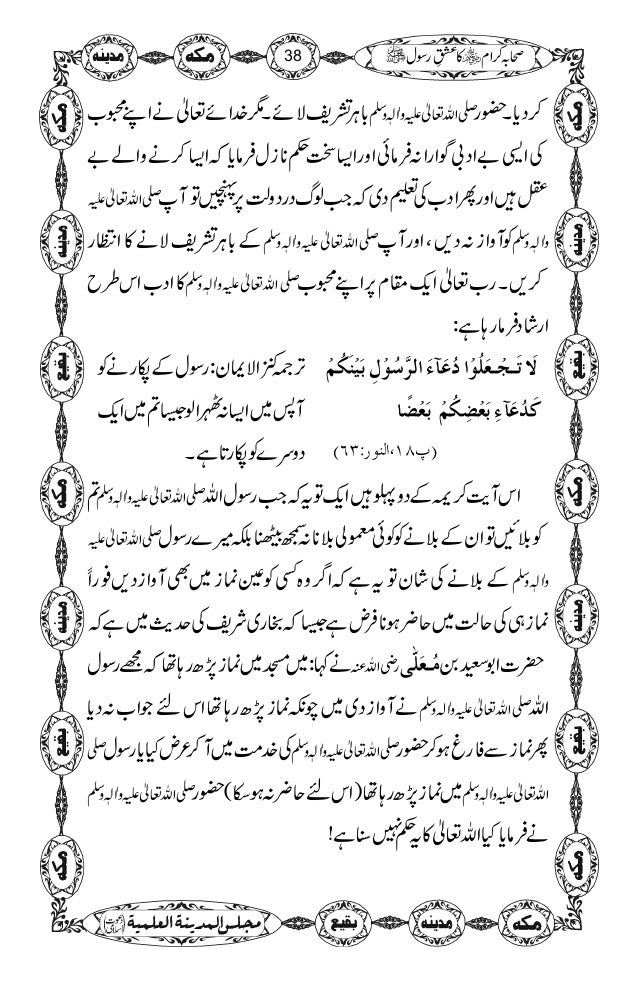 صحابہ کرام کا عشق رسول ﷺ
38
مکہ
مدینہ
کر دیا۔ حضور صلی اللہ تعالیٰ علیہ والہٖ وسلم باہر تشریف لائے۔ مگر خدائے تعالیٰ نے اپنے محبوب
کی ایسی بے ادبی گوارا نہ فرمائی اور ایسا سخت حکم نازل فرمایا کہ ایسا کرنے والے بے
عقل ہیں اور پھر ادب کی تعلیم دی کہ جب لوگ در دولت پر پہنچیں تو آپ صلی اللہ تعالیٰ علیہ
والہٖ وسلم کو آواز نہ دیں، اور آپ صلی اللہ تعالیٰ علیہ والہٖ وسلم کے باہر تشریف لانے کا انتظار
کریں۔ رب تعالیٰ ایک مقام پر اپنے محبوب صلی اللہ تعالیٰ علیہ والہٖ وسلم کا ادب اس طرح
ارشاد فرما رہا ہے:
لَا تَجْعَلُوْا دُعَآءَ الرَّسُوْلِ بَیْنَكُمْ ترجمہ کنز الایمان: رسول کے پکارنے کو
كَدُعَآءِ بَعْضِكُمْ بَعْضًا آپس میں ایسا نہ ٹھہرا لو جیسا تم میں ایک
(پ۱۸، النور:۶۳) دوسرے کو پکارتا ہے۔
اس آیت کریمہ کے دو پہلو ہیں ایک تو یہ کہ جب رسول اللہ صلی اللہ تعالیٰ علیہ والہٖ وسلم تم
کو بلائیں تو ان کے بلانے کو کوئی معمولی بلانا نہ سمجھ بیٹھنا بلکہ میرے رسول صلی اللہ تعالیٰ علیہ
والہٖ وسلم کے بلانے کی شان تو یہ ہے کہ اگر وہ کسی کو عین نماز میں بھی آواز دیں فوراً
نماز ہی کی حالت میں حاضر ہونا فرض ہے جیسا کہ بخاری شریف کی حدیث میں ہے کہ
حضرت ابو سعید بن مُعَلّٰی رضی اللہ عنہ نے کہا: میں مسجد میں نماز پڑھ رہا تھا کہ مجھے رسول
اللہ صلی اللہ تعالیٰ علیہ والہٖ وسلم نے آواز دی میں چونکہ نماز پڑھ رہا تھا اس لئے جواب نہ دیا
پھر نماز سے فارغ ہو کر حضور صلی اللہ تعالیٰ علیہ والہٖ وسلم کی خدمت میں آ کر عرض کیا یا رسول صلی
اللہ تعالیٰ علیہ والہٖ وسلم میں نماز پڑھ رہا تھا (اس لئے حاضر نہ ہو سکا) حضور صلی اللہ تعالیٰ علیہ والہٖ وسلم
نے فرمایا کیا اللہ تعالیٰ کا یہ حکم نہیں سنا ہے!
مکہ
مدینہ
بقیع
مکہ
مدینہ
بقیع
مکہ
مکہ
مدینہ
بقیع
مکہ
مدینہ
بقیع
مکہ
مکہ
مدینہ
بقیع
مجلس المدینۃ العلمیۃ